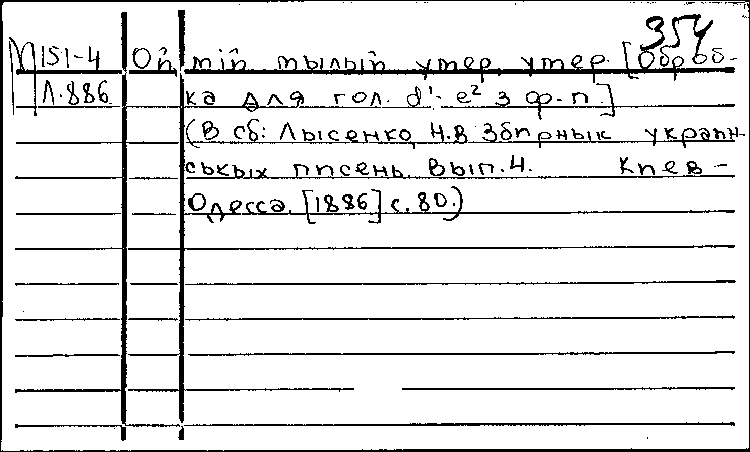 354
М151-4 Ой мій мылый умер, умер. [Оброб-
Л.886 ка для гол. d¹- e² з ф-п.]
(В сб: Лысенко, Н.В Збірнык украін-
ськых пісень. Вып. 4. Киев -
Одесса. [1886] с. 80.)